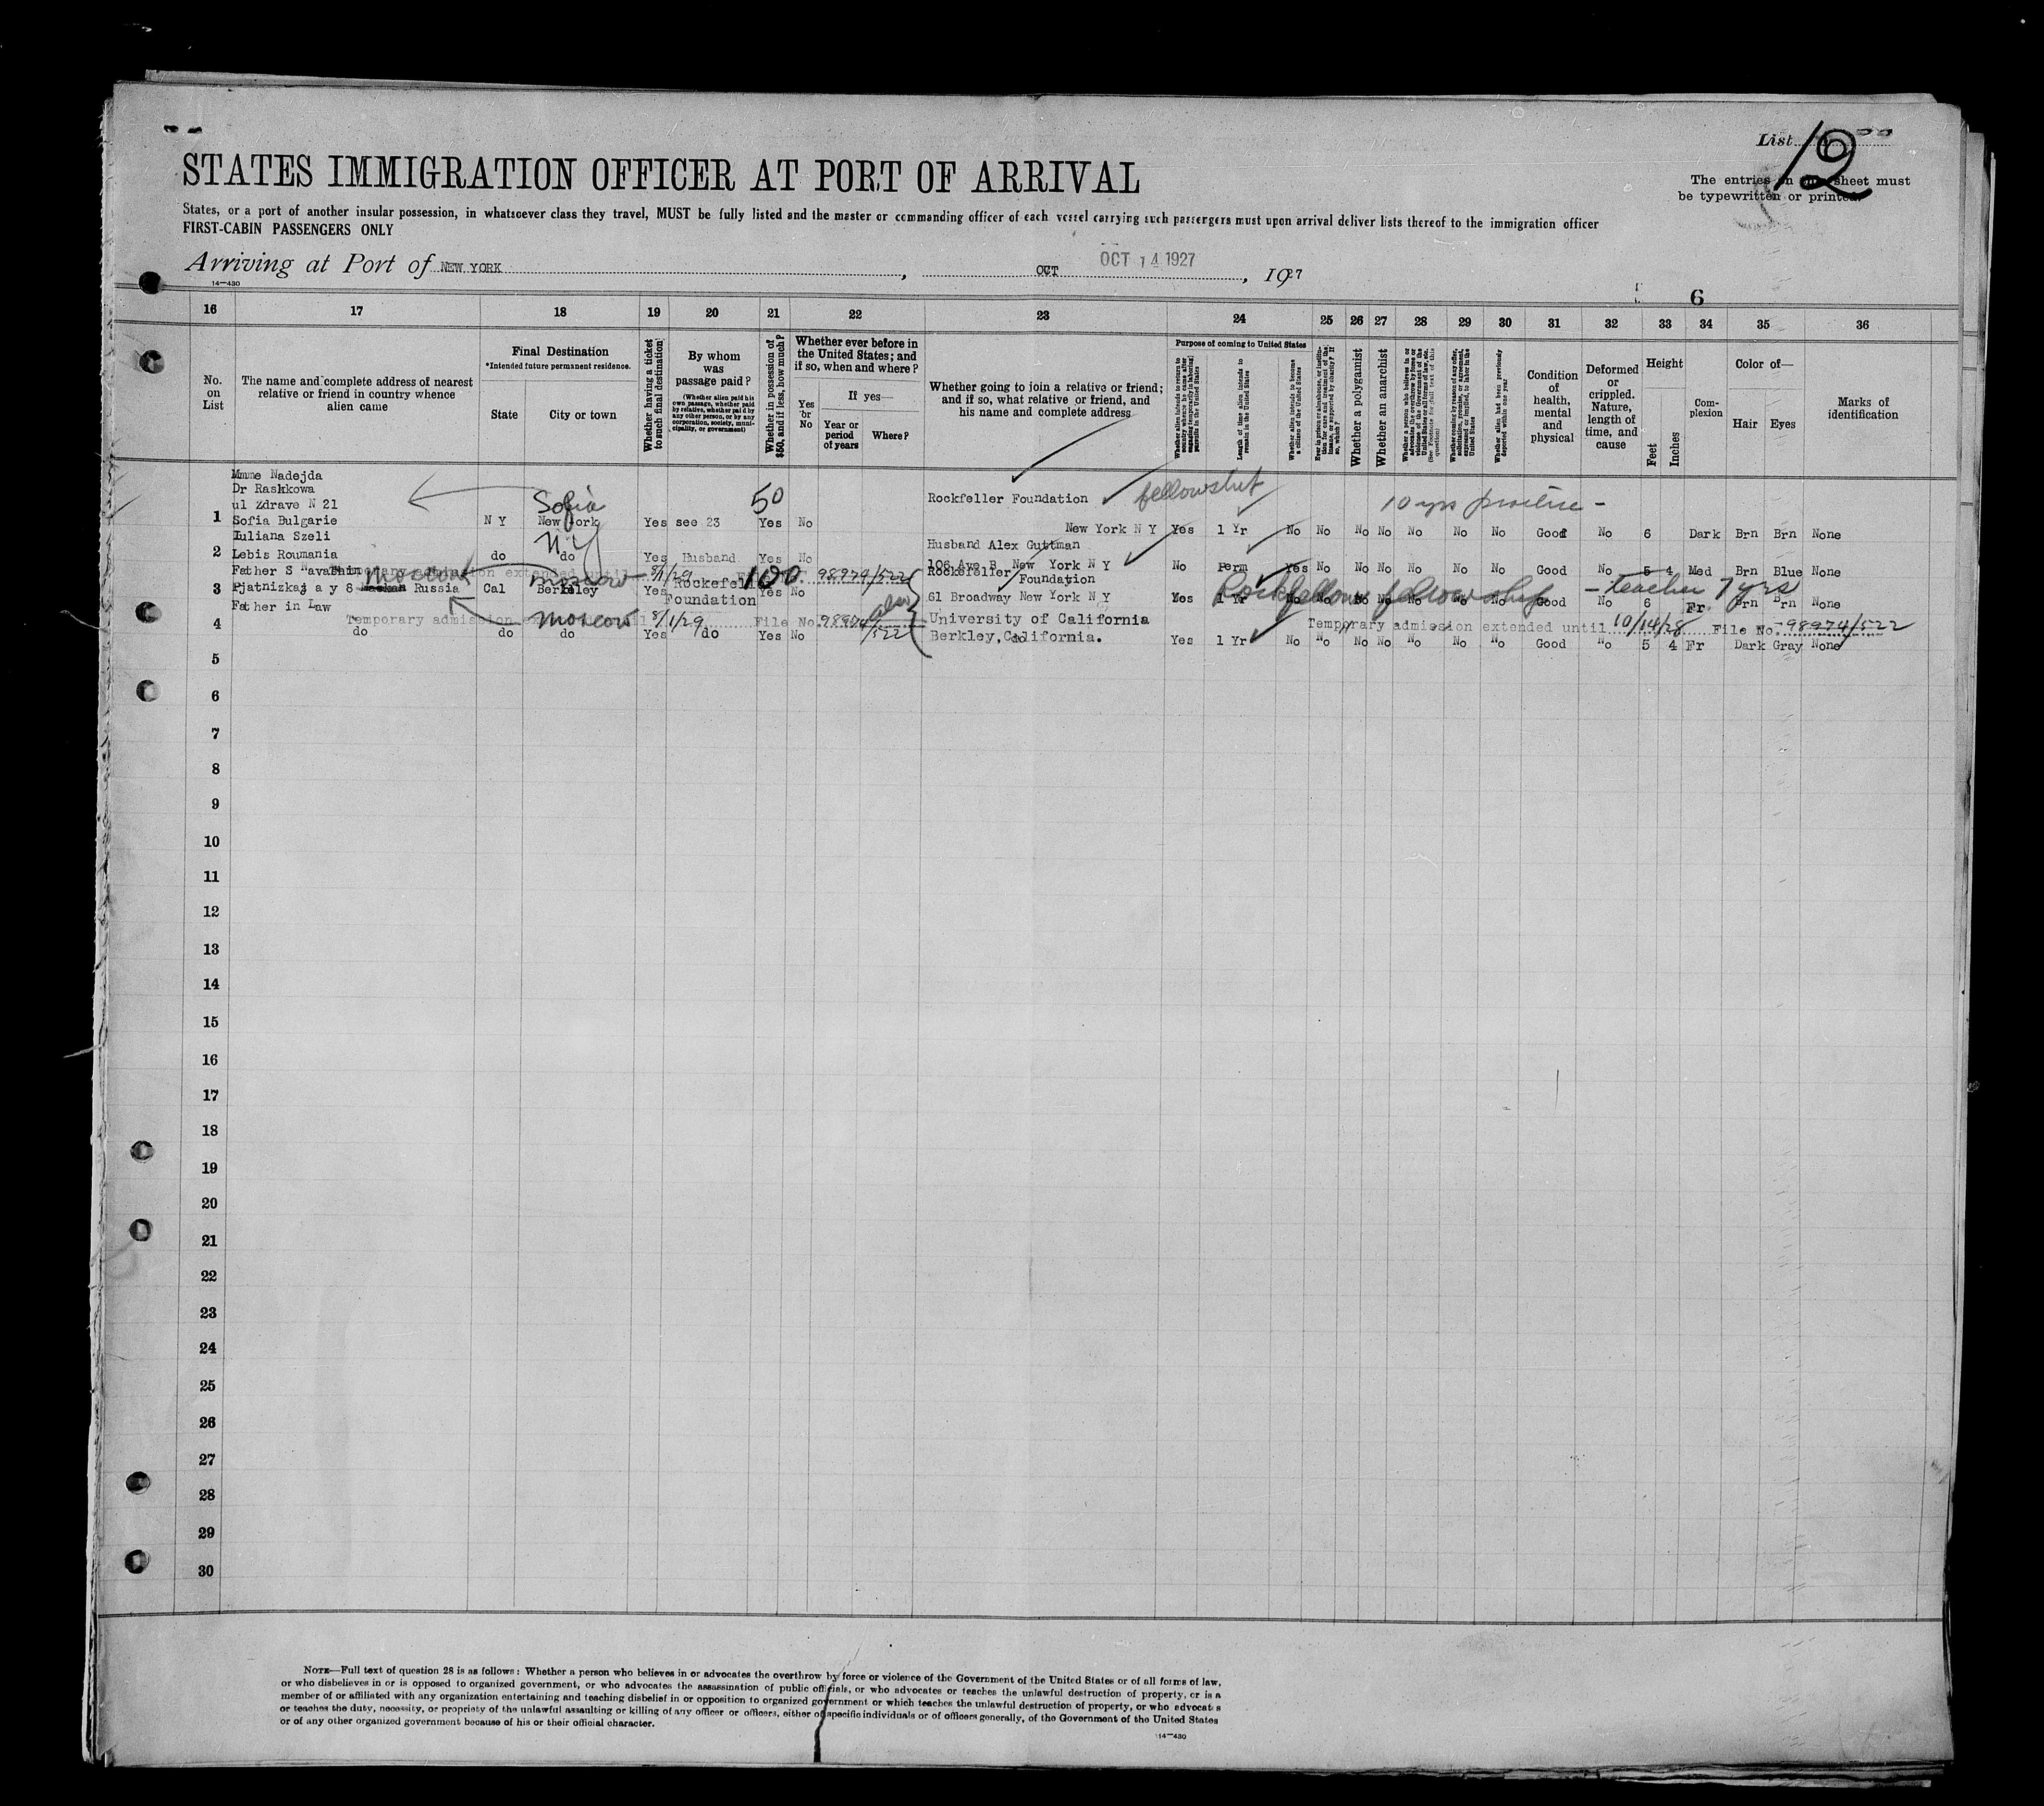 List 12
STATES IMMIGRATION OFFICER AT PORT OF ARRIVAL
The entries on this sheet must
be typewritten or printed.
States, or a port of another insular possession, in whatsoever class they travel, MUST be fully listed and the master or commanding officer of each vessel carrying such passengers must upon arrival deliver lists thereof to the immigration officer
FIRST-CABIN PASSENGERS ONLY
Arriving at Port of NEW YORK, OCT OCT 14 1927, 1927
14—430
6
16 17 18 19 20 21 22 23 24 25 26 27 28 29 30 31 32 33 34 35 36
No. on List
The name and complete address of nearest relative or friend in country whence alien came
Final Destination
*Intended future permanent residence.
State
City or town
Whether having a ticket to such final destination
By whom was passage paid?
(Whether alien paid his own passage, whether paid by relative, whether paid by any other person, or by any corporation, society, municipality, or government)
Whether in possession of $50, and if less, how much?
Whether ever before in the United States; and if so, when and where?
Yes or No
If yes—
Year or period of years
Where?
Whether going to join a relative or friend; and if so, what relative or friend, and his name and complete address
Purpose of coming to United States
Length of time alien intends to remain in the United States
Whether alien intends to become a citizen of the United States
Whether a polygamist
Whether an anarchist
Whether alien had been previously deported within one year
Condition of health, mental and physical
Deformed or crippled. Nature, length of time, and cause
Height
Feet
Inches
Complexion
Color of—
Hair
Eyes
Marks of identification
Mmme Nadejda
Dr Raskkowa
ul Zdrave N 21 Sofia 50 Rockfeller Foundation fellowship 10 yrs practice -
1 Sofia Bulgarie N Y New York Yes see 23 Yes No New York N Y Yes 1 Yr No No No No No No No Good No 6 Dark Brn Brn None
Iuliana Szeli NY Husband Alex Guttman
2 Lebis Roumania do do Yes Husband Yes No 106 Ave B New York N Y No Perm Yes No No No No No No Good No 5 4 Med Brn Blue None
Father S Navashin Temporary admission extended until 8/1/29 File No. 98974/522
Moscow Moscow 100 Rockefeller Foundation Rockfellow fellowship - teacher 7 yrs
3 Pjatnizkaj a y 8 Russia Cal Berkeley Yes Rockefeller Foundation Yes No 61 Broadway New York N Y Yes 1 Yr No No No No No No No Good No 6 Fr Brn Brn None
Father in Law Moscow University of California
Temporary admission extended until 8/1/29 File No. 98974/522 Temporary admission extended until 10/14/28 File No. 98974/522
4 do do do Yes do Yes No Berkley, California. do Yes 1 Yr No No No No No No No Good No 5 4 Fr Dark Gray None
5
6
7
8
9
10
11
12
13
14
15
16
17
18
19
20
21
22
23
24
25
26
27
28
29
30
NOTE—Full text of question 28 is as follows: Whether a person who believes in or advocates the overthrow by force or violence of the Government of the United States or of all forms of law,
or who disbelieves in or is opposed to organized government, or who advocates the assassination of public officials, or who advocates or teaches the unlawful destruction of property, or is a
member of or affiliated with any organization entertaining and teaching disbelief in or opposition to organized government or which teaches the unlawful destruction of property, or who advocates
or teaches the duty, necessity, or propriety of the unlawful assaulting or killing of any officer or officers, either of specific individuals or of officers generally, of the Government of the United States
or of any other organized government because of his or their official character.
14—430